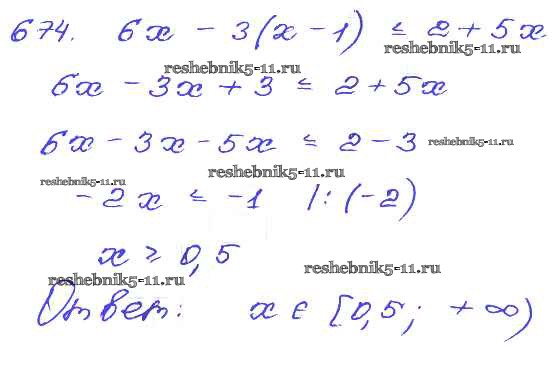 674. 6x - 3(x - 1) ≤ 2 + 5x
reshebnik5-11.ru
reshebnik5-11.ru
6x - 3x + 3 ≤ 2 + 5x
6x - 3x - 5x ≤ 2 - 3 reshebnik5-11.ru
reshebnik5-11.ru
reshebnik5-11.ru
-2x ≤ -1 |: (-2)
x ≥ 0,5
reshebnik5-11.ru
reshebnik5-11.ru
Ответ: x ∈ [0,5; +∞)